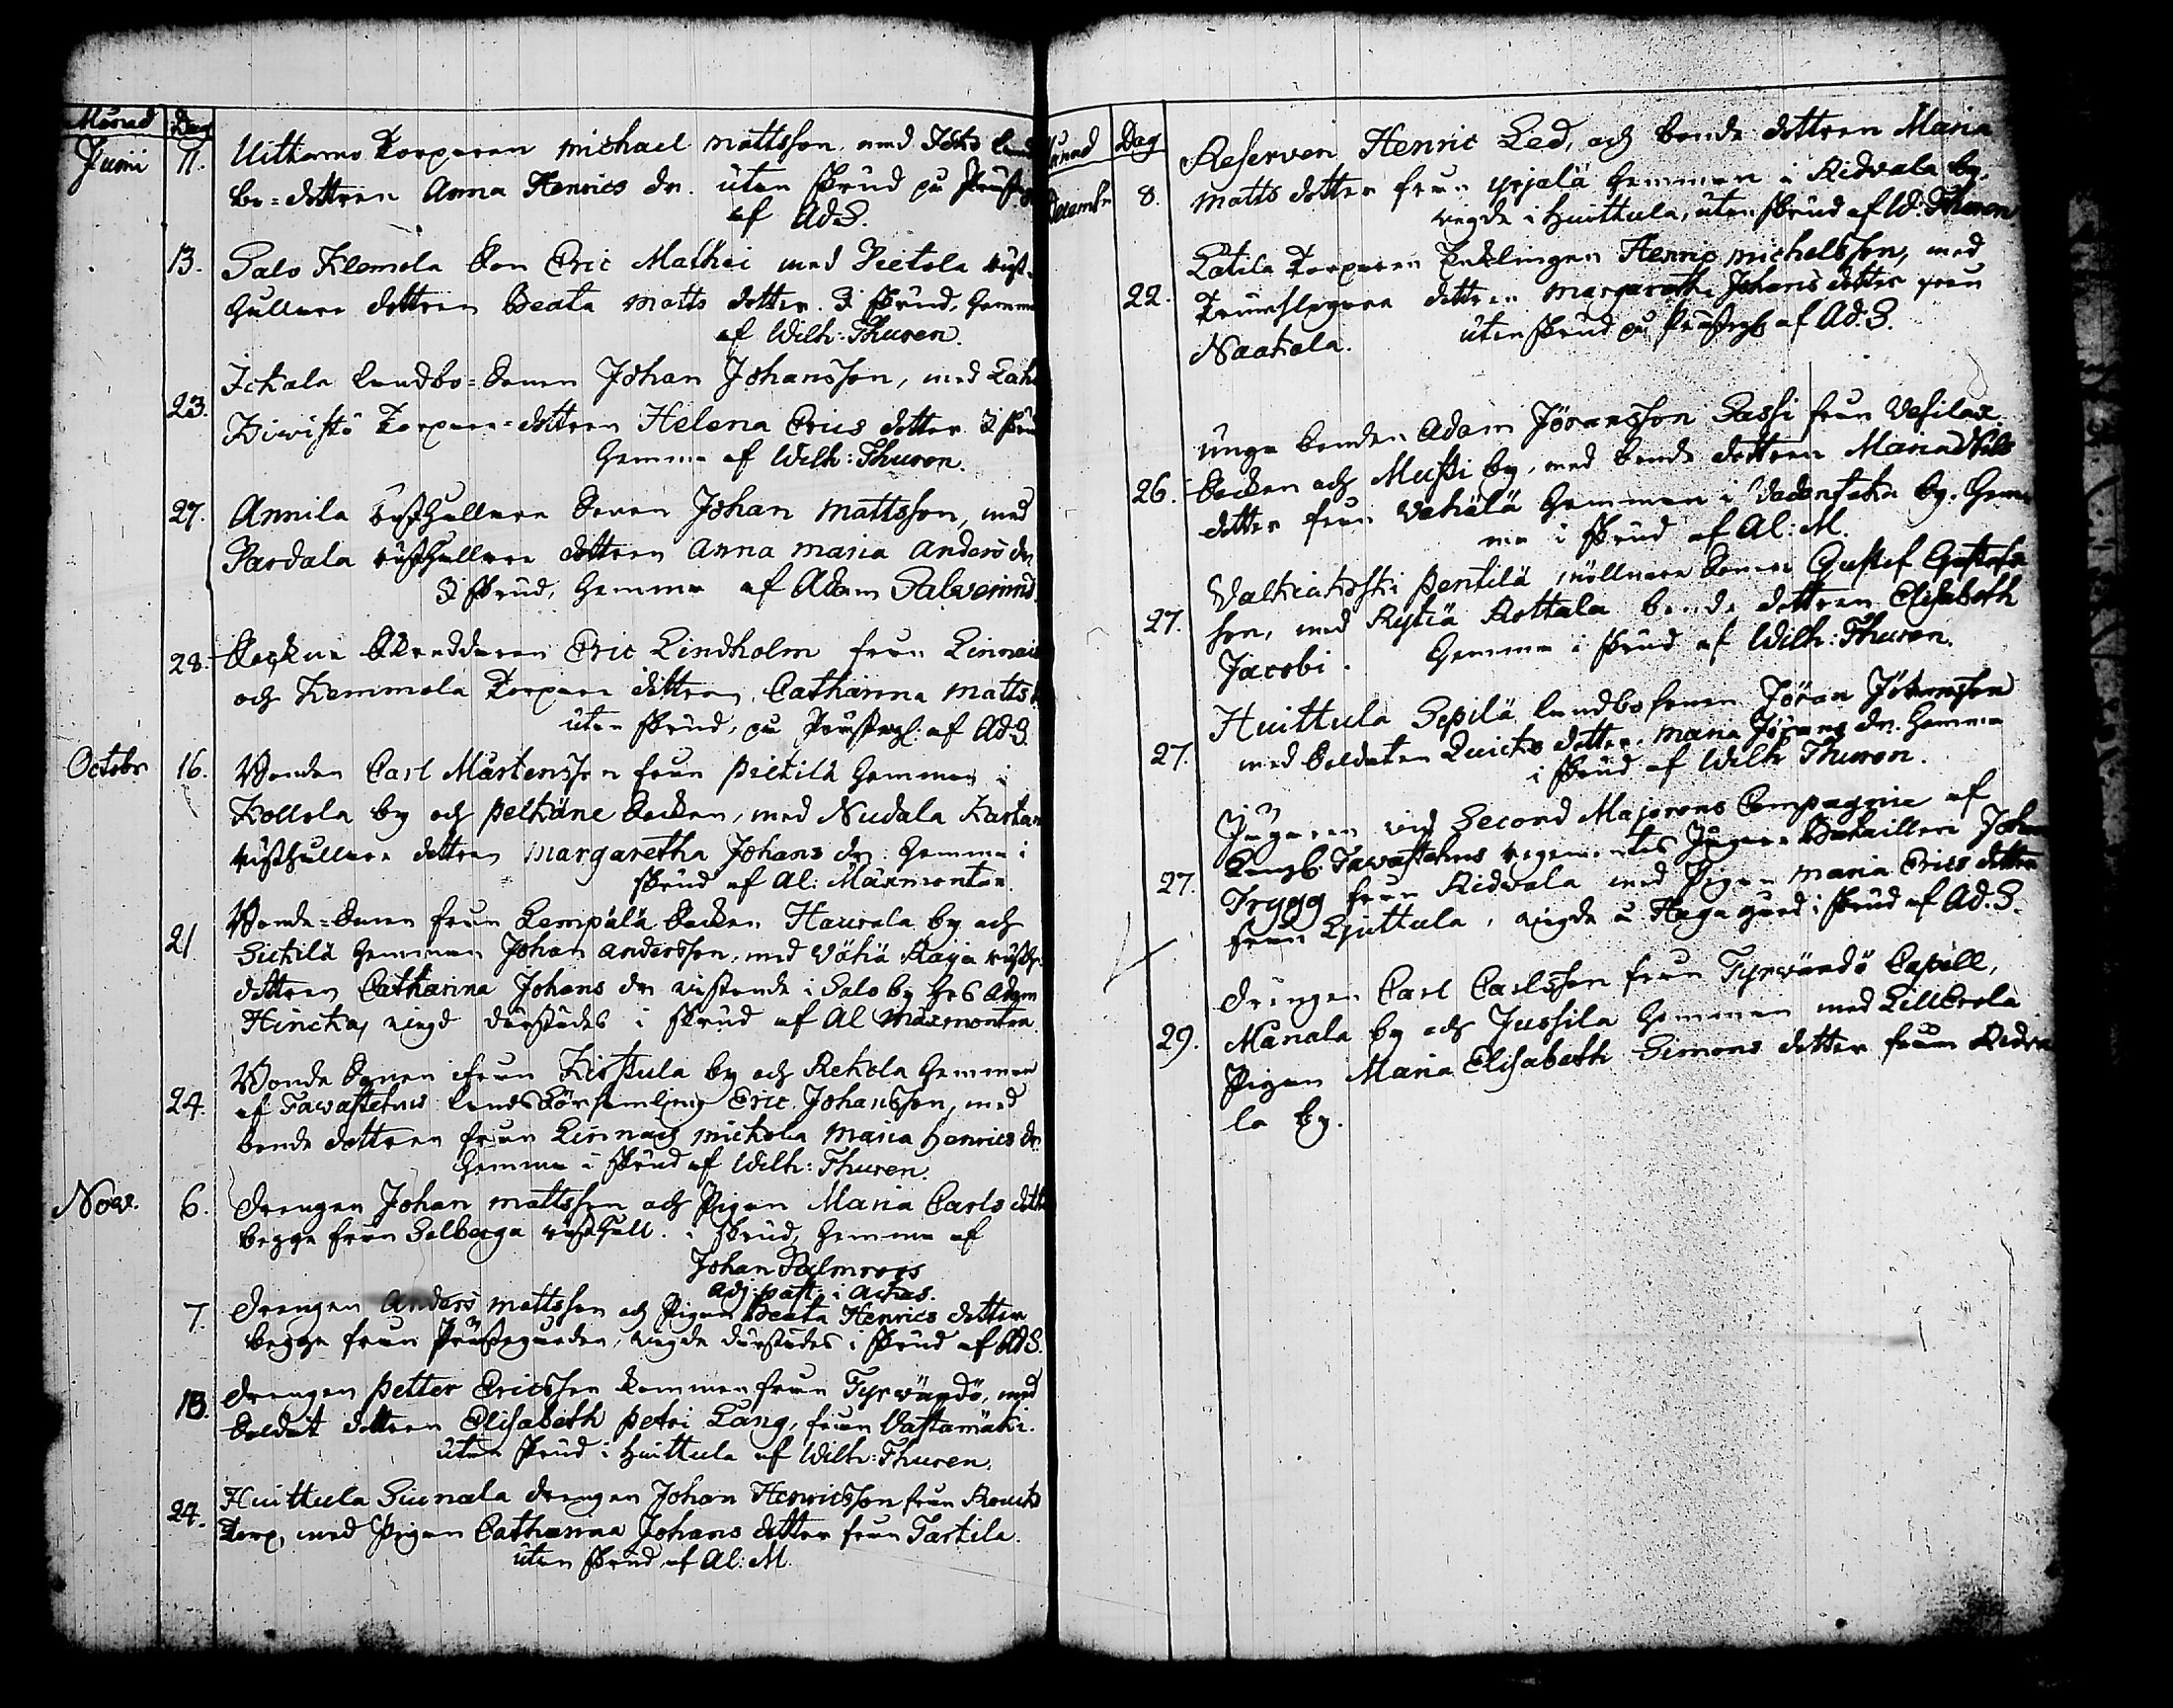 Månad Dag
Junii 11. Uittamo Torparen Michael Mattsson, med
bo=dottren Anna Henrics dr. utan skrud på
af Ad. S.
13. Salo Klemola Son Eric Mathiæ med Pietola rust-
hållare dottren Beata Matts dotter. I skrud, hemma
af Wilh: Thuren.
23. Ickala Landbo=Sonen Johan Johansson, med
Kiwistö Torpare=dottren Helena Erics dotter I
hemma af Wilh: Thuren.
27. Annila Rusthållare Sonen Johan Mattsson, med
Pardala rusthållare dottren Anna Maria Anders dr
I skrud, hemma af Adam Salvenius
28. Sockne Skräddaren Eric Lindholm från
och Kemmola Torpare dottren Catharina Matts
utan skrud, på Prästeg: af Ad. S.
Octobr 16. Bonden Carl Mårtensson från Pietilä hemman i
Kollola by och Pelkäne Socken, med Nudala
rusthållare dottren Margaretha Johans dr. hemma i
skrud af Al: Maxmontan.
21 Bonde=Sonen från Lempälä Socken Haurala by och
Sickilä hemman Johan Andersson, med Vähä Raija
dottren Catharina Johans dr vistande i Salo by hos Adam
Hincka, vigd därstädes i skrud af Al Maxmontan
24. Bonde Sonen från Kirstula by och Rekola hemman
af Tawastehus Lands Församling Eric Johansson, med
bonde dottren från Mickola Maria Henrics dr.
hemma i skrud af Wilh: Thuren.
Nov. 6. Drengen Johan Mattsson och Pigan Maria Carls dotter
begge från Selberga rusthåll. i skrud, hemma af
Johan Palmroos
adj: past: i Ackas.
7. Drengen Anders Mattsson och Pigan Beata Henrics dotter
begge från Prästegården, vigde därstädes i skrud af Ad S.
13. Drengen Petter Ericsson kommen från Tyrwändö, med
Soldat dottren Elisabeth Petri Lång, från Vastamäki.
utan skrud i Huittula af Wilh: Thuren.
24. Huittula Siunala drengen Johan Henricsson från
Torp, med Pigan Catharina Johans dotter från Tartila.
utan skrud af Al: M.
Månad Dag
December 8. Reserven Henric Led, och bonde dottren Maria
Matts dotter från Yrjälä hemman i Ridvala by.
vigde i Huittula, utan skrud af W: Thuren
22. Latila Torparen Enklingen Henric Michelsson, med
dottren Margaretha Johans dotter från
Naakala. utan skrud på Prästeg af Ad: S.
26. unga bonden Adam Jöransson Sassi från Vesilax
Socken och Mussi by, med bonde dottren Maria Nils
dotter från Vähälä hemman i by. hem-
ma i skrud af Al: M.
27. Valkiakoski Pentilä möllnare Sonen Gustaf Gustafs
son, med Rytiä Rottala bonde dottren Elisabeth
Jacobi. hemma i skrud af Wilh: Thuren.
27. Huittula Sepilä Landbo sonen Jöran Jöransson
med Soldaten Quicks dotter, Maria Jörans dr. hemma
i skrud af Wilh Thuren.
27. Jägaren vid Second Majorens Compagnie af
Kongl. Tawastehus regementes Jägare Batailleon Johan
Trygg från Ridvala med Pigan Maria Erics dotter
från Ljuttula, vigde å Haga gård i skrud af Ad. S.
29. Drengen Carl Carlsson från Tyrwändö Capell,
Manala by och Jussila hemman med LillErola
Pigan Maria Elisabeth Simons dotter från Ridva
la by.